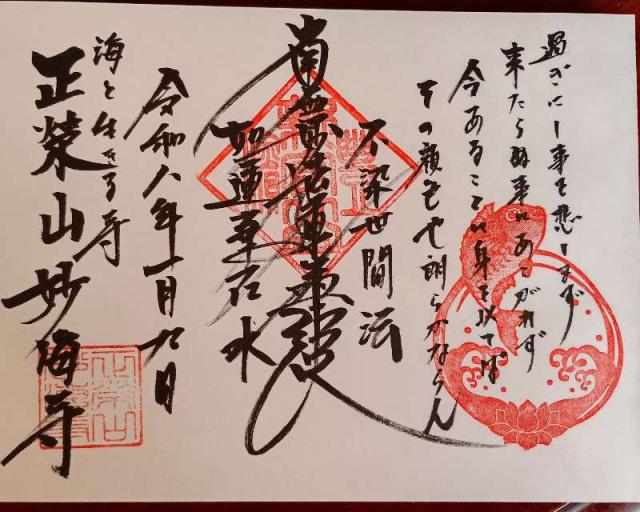 過ぎにし事を悲しまず
来たらぬ事にあこがれず
今あることに身を以てば
その顔色や朗らかならん
不染世間法
南無妙法蓮華経
如蓮華在水
令和八年一月九日
海と生きる寺
正榮山妙海寺